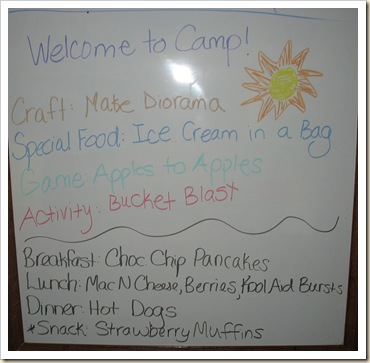 Welcome to Camp!
Craft: Make Diorama
Special Food: Ice Cream in a Bag
Game: Apples to Apples
Activity: Bucket Blast
Breakfast: Choc Chip Pancakes
Lunch: Mac N Cheese, Berries, Kool Aid Bursts
Dinner: Hot Dogs
*Snack: Strawberry Muffins